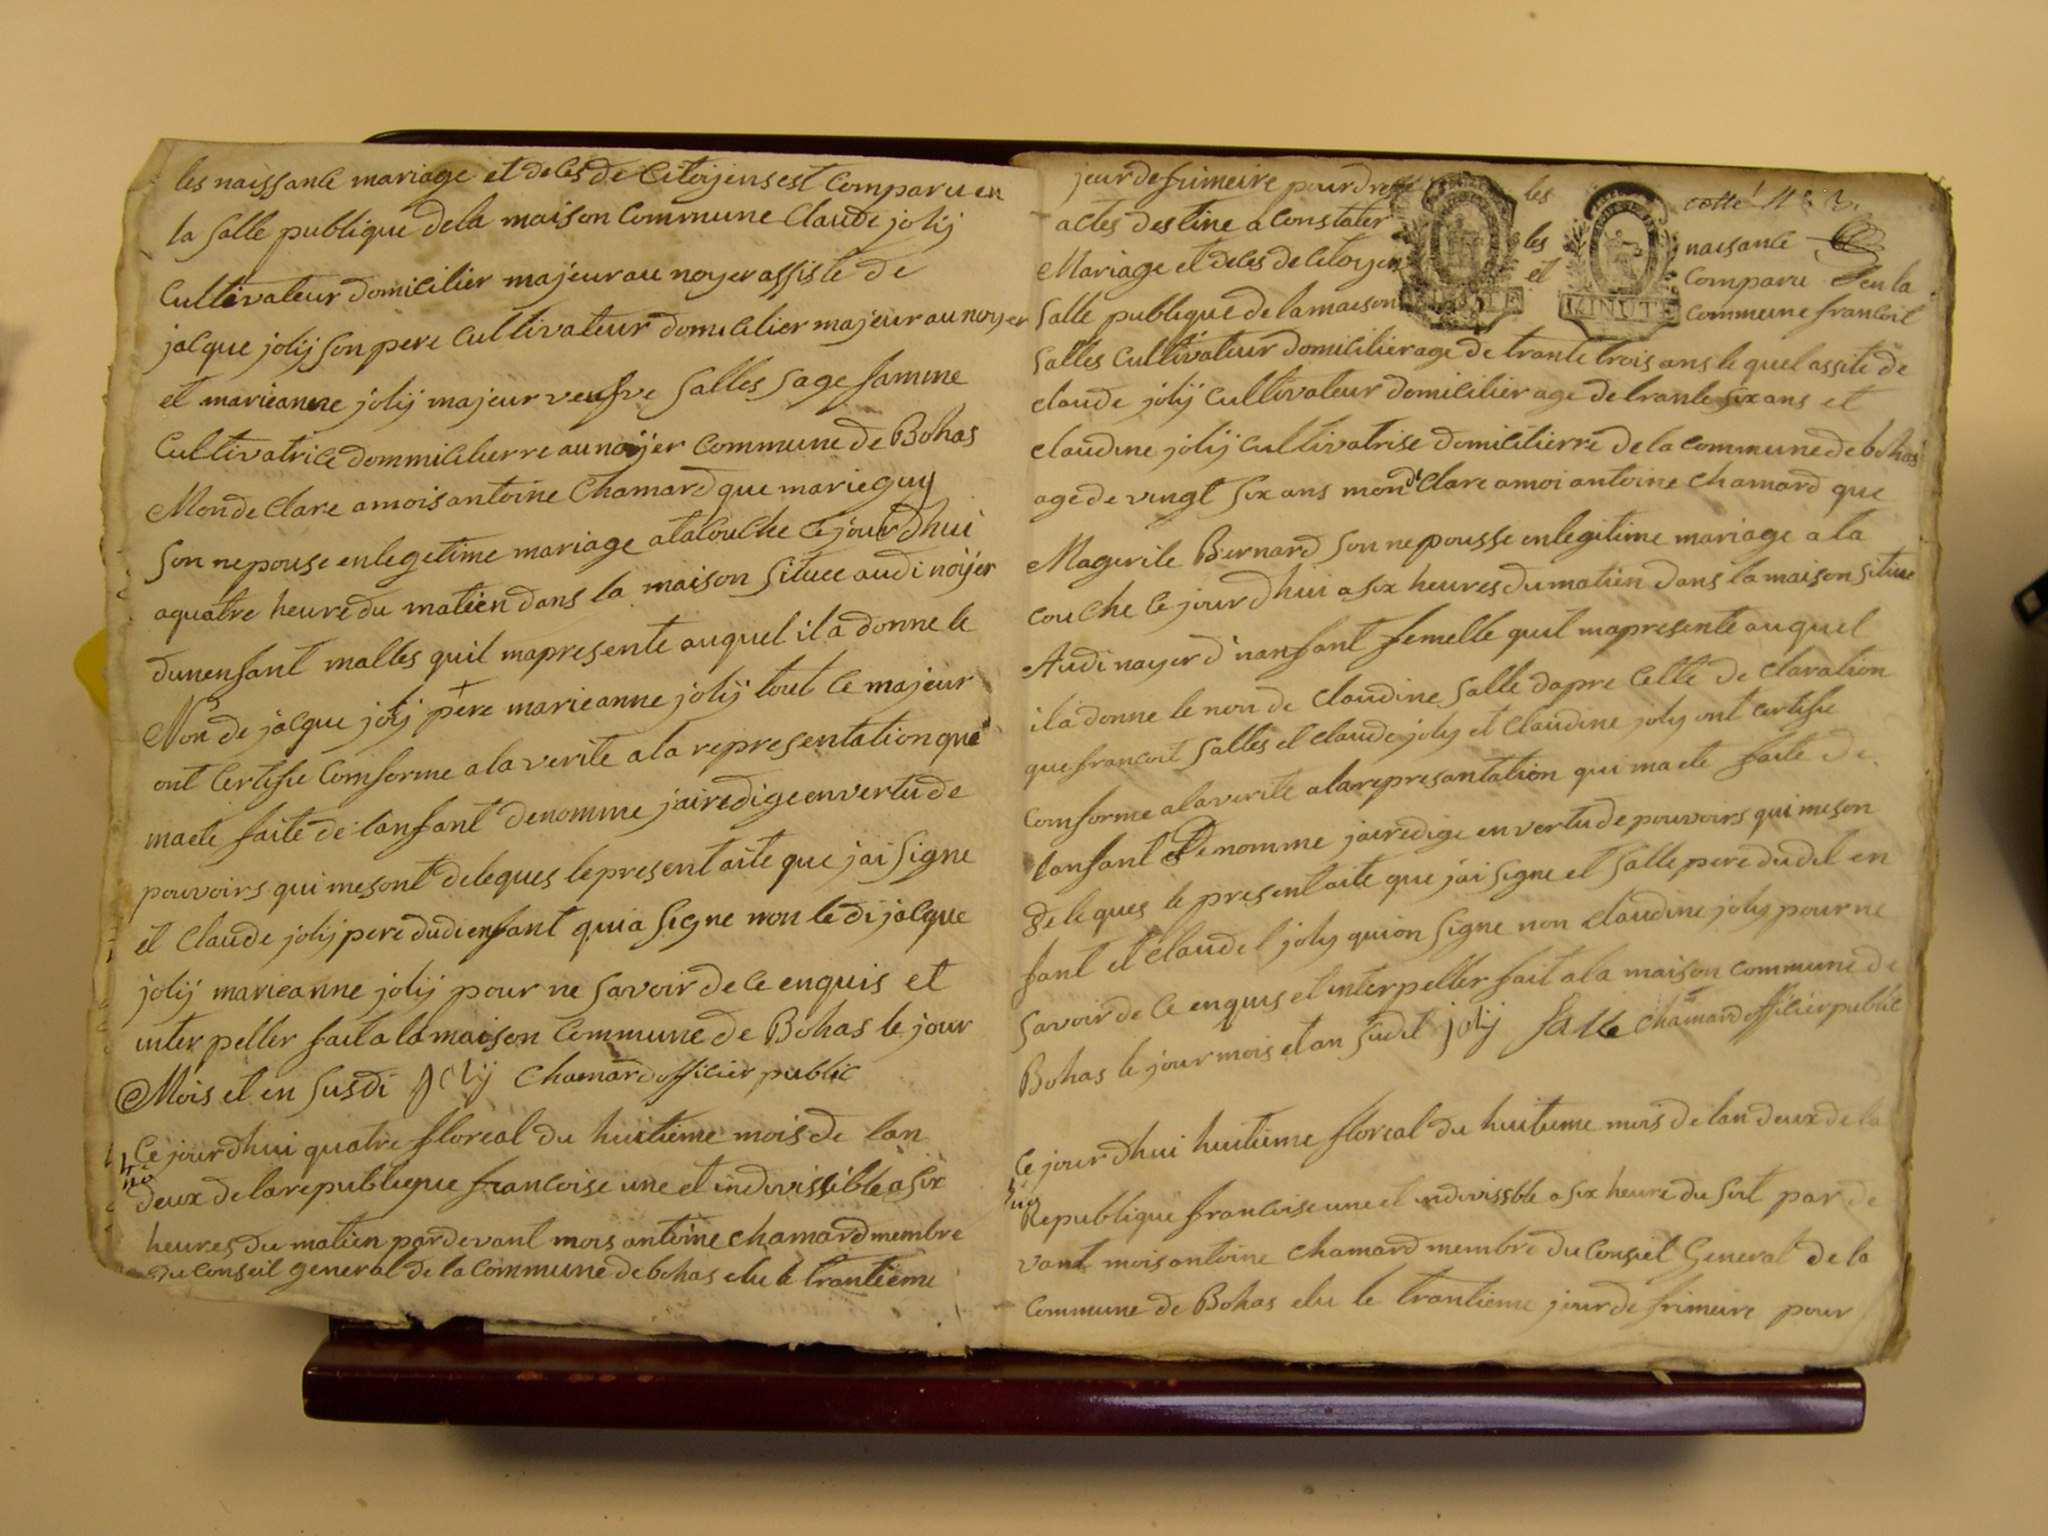 les naissance mariage et deces de Citoijens est Comparu en
la Salle publique dela maison Commune Claude jolij
Cultivateur domicilier majeur au noyer assiste de
jacque jolij son pere Cultivateur domicilier majeur au noyer
et marieanne jolij majeur veufve Salles Sage famme
Cultivatrice dommicilierre au noijer Commune de Bohas
Mon de Clare a mois antoine Chamard que marie guy
Son nepouse en legetime mariage a la Couche Ce jourdhui
a quatre heure du matien dans la maison Situee audi noijer
dunenfant malles quil mapresente auquel il a donne le
Non de jacque jolij pere marieanne jolij tout Ce majeur
ont Certifie Comforme a la verite a la representation que
maete faite de lanfant denomme jai redige en vertu de
pouvoirs qui me sont deleques le present aite que jai Signe
et Claude jolij pere dudi enfant qui a Signe non le di jacque
jolij marieanne jolij pour ne Savoir de Ce enquis et
inter peller fait a la maison Commune de Bohas le jour
Mois et en Susdi jolij Chamard officier public
Ce jourdhui quatre floreal du huitieme mois de lan
deux de la republique francoise une et indivissible a Six
heures du matien pardevant mois antoine Chamard membre
du Conseil general de la Commune de bohas elu le trantieme
jour de frimeire pour dre les cotté
actes destine a Constater les naisance
Mariage et deces de Citoyen et Comparu en la
Salle publique de la maison Commune francoit
Salles Cultivateur domicilier age de trante trois ans le quel assite de
claude jolij Cultivateur domicilier age de trante Six ans et
claudine jolij Cultivatrise domicilierre de la commune de bohas
age de vingt Six ans mon de Clare a moi antoine Chamard que
Magerite Bernard Son nepousse en legitime mariage a la
couche Ce jourdhui a Six heures du matien dans la maison Situee
Audi nayer dinanfant femelle quil mapresente auquel
il a donne le non de Claudine Salle dapre Celle de Claration
que francoit Salles et Claude joly et Claudine joly ont Certifie
Comforme a la verite a la represantation qui maete faite de
lanfant denomme jai redige en vertu de pouvoirs qui me son
deleques le present aite que jai Signe et Salle pere dudit en
fant et Claude joly qui on Signe non Claudine joly pour ne
Savoir de Ce enquis et inter peller fait a la maison commune de
Bohas le jour mois et an Sudit jolij Salle Chamard officier public
Ce jourdhui huitieme floreal du huitieme mois de lan deux de la
Republique francoise une et indivissble a Six heure du Soit par de
vant mois antoine Chamard membre du Conseil General de la
Commune de Bohas elu le trantieme jour de frimeire pour
MINUTE